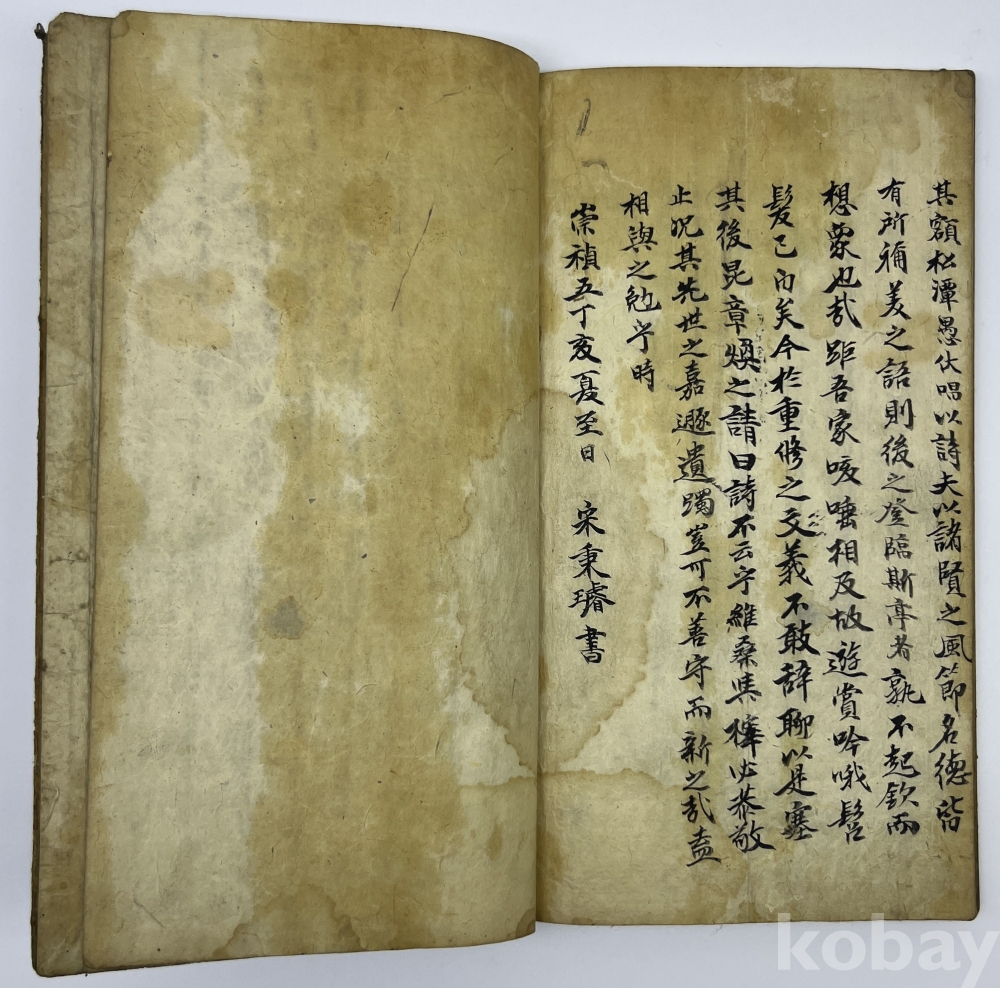 其額松潭愚伏唱以詩夫以諸賢之風節名德皆
有所稱美之語則後之登臨斯亭者孰不起欽而
想象也哉距吾家咳唾相及故遊賞吟哦髫
髮已而矣今於重修之文義不敢辭聊以是塞
其後昆章煥之請曰詩不云乎維桑與梓必恭敬
止况其先世之嘉遯遺躅豈可不善守而新之哉盍
相與之勉乎時
崇禎五丁亥夏至日 宋秉璿書
kobay